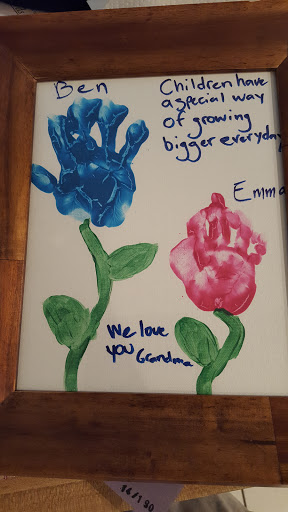 Ben
Children have
a special way
of growing
bigger everyday
Emma
We love
you Grandma